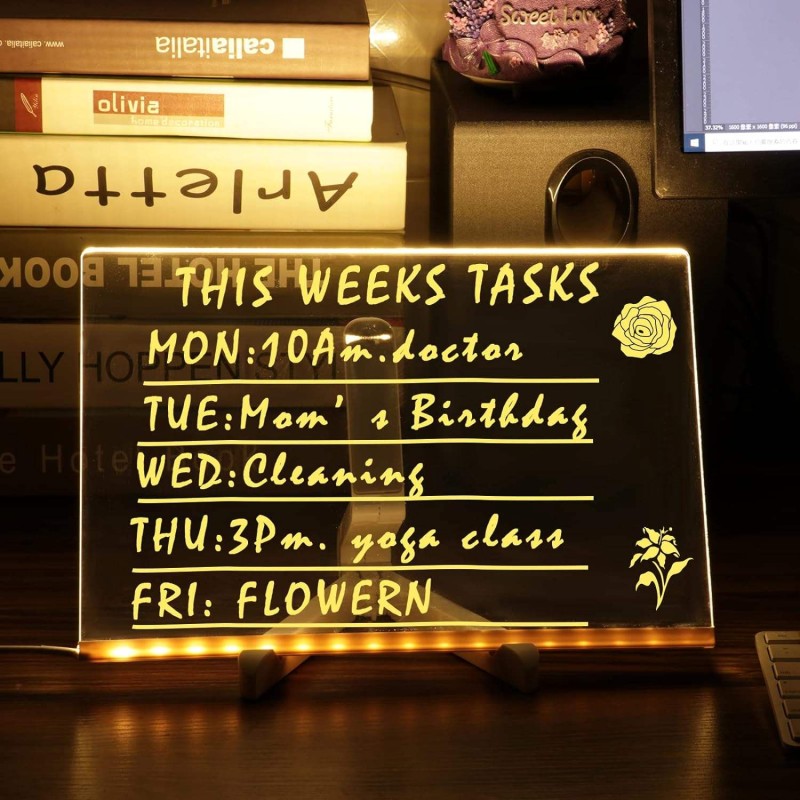 www.caliaitalia
caliaitalia
olivia
Home decoration
Arletta
Sweet Love
THE HOTEL BOOK
LLY HOPPEN STYL
e Hotel Book
THIS WEEKS TASKS
MON:10Am.doctor
TUE:Mom's Birthday
WED:Cleaning
THU:3Pm. yoga class
FRI: FLOWERN